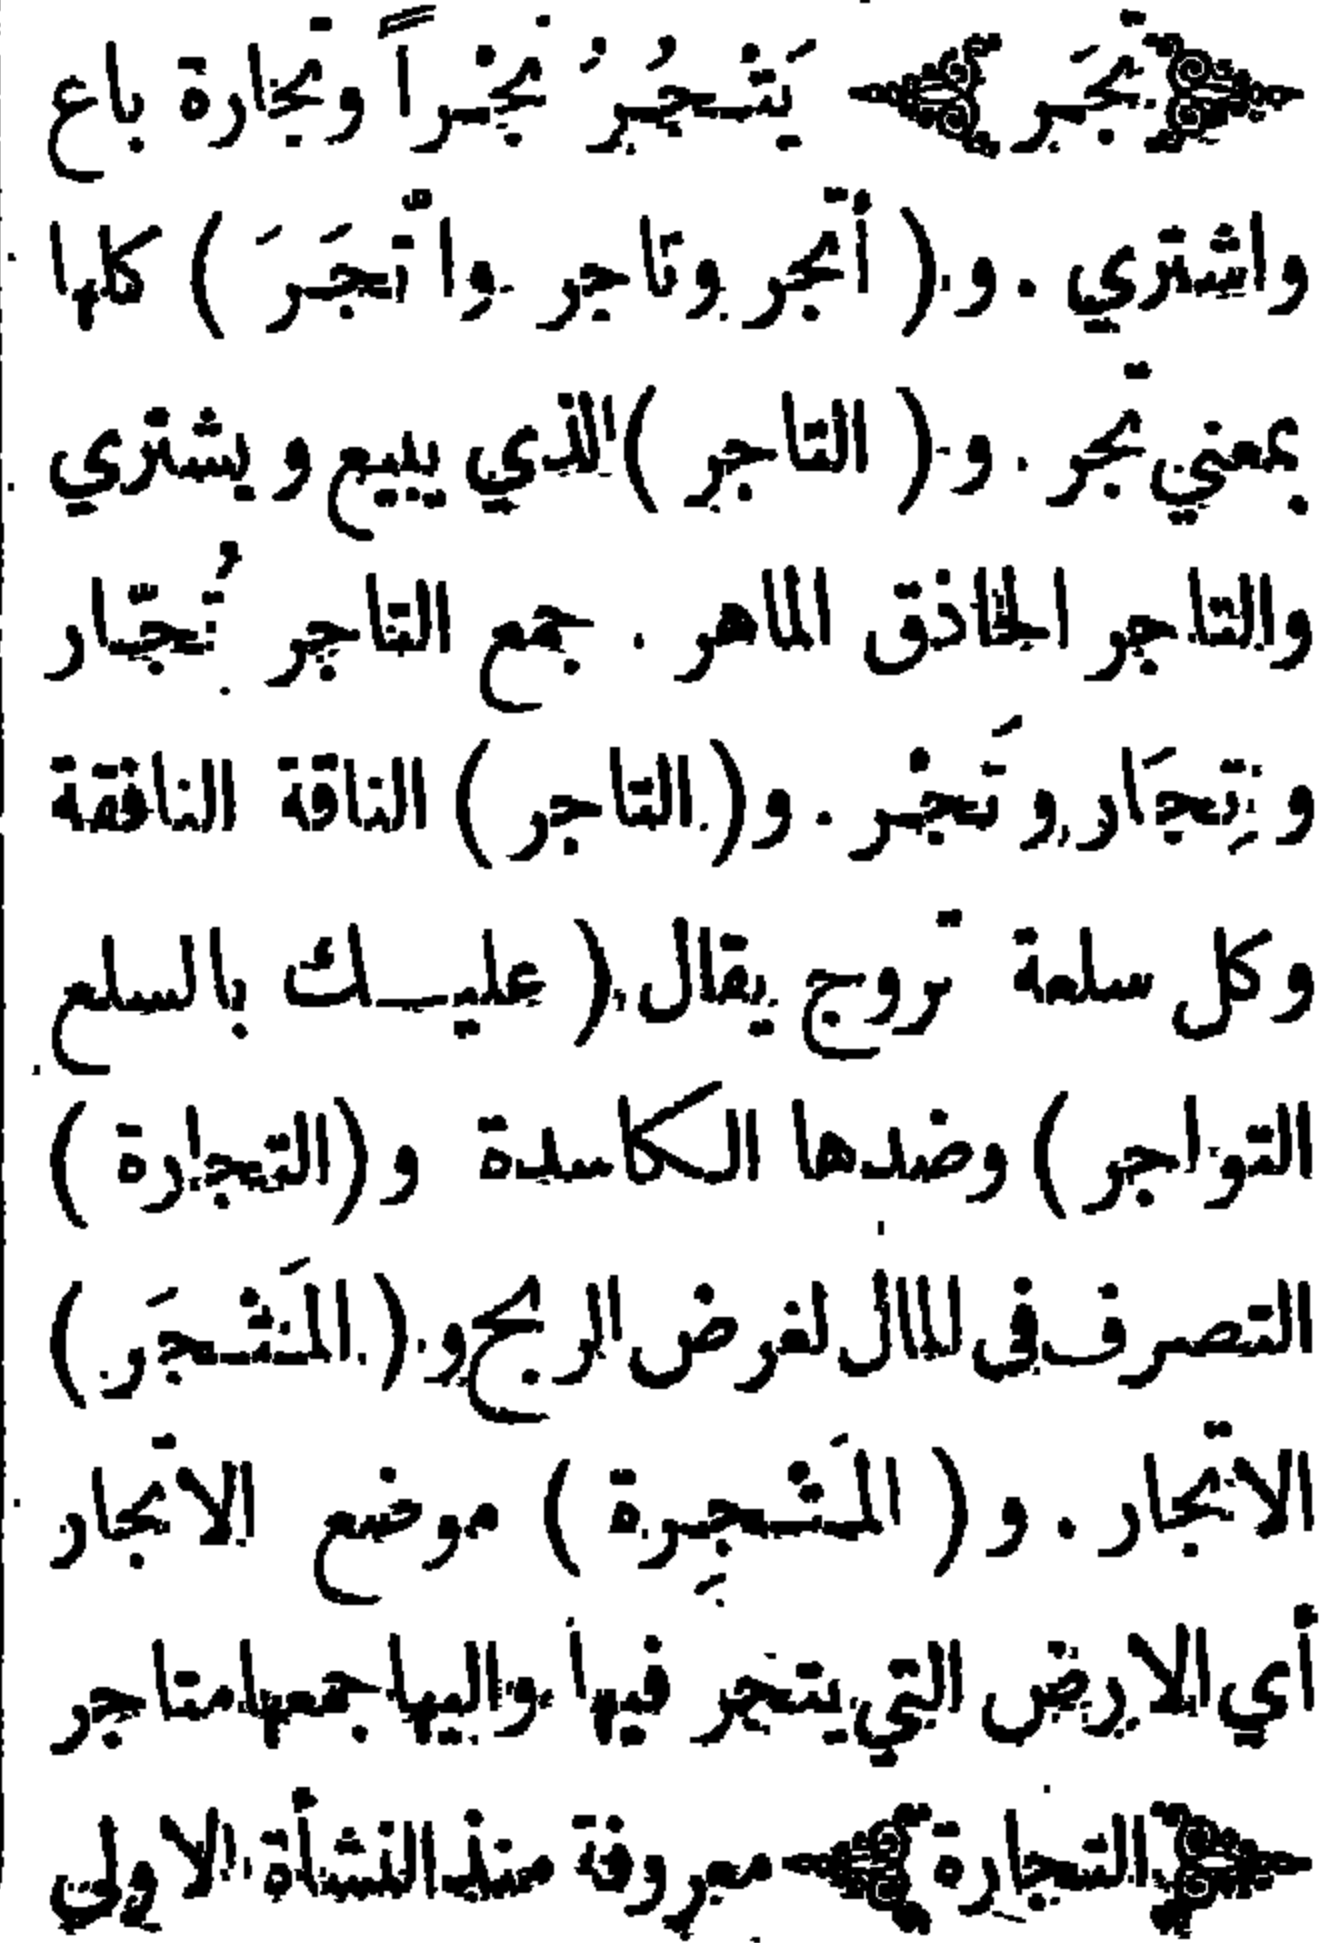 ﴿تَجَر﴾ يَتْجُرُ تَجْراً وتجارة باع
واشتري . و ( أتجر وتاجر واتّجَرَ ) كلها
بمعني تجر . و ( التاجر ) الذي يبيع ويشتري
والتاجر الحاذق الماهر . جمع التاجر تُجّار
وتِجَار وتَجْر . و ( التاجر ) الناقة النافقة
وكل سلعة تروج يقال ( عليك بالسلع
التواجر ) وضدها الكاسدة و (التجارة )
التصرف في المال لغرض الربح و ( المَتْجَر )
الاتجار . و ( المَتْجِرة ) موضع الاتجار
أي الارض التي يتجر فيها واليها جمعها متاجر
﴿التجارة﴾ معروفة منذ النشأة الاولي